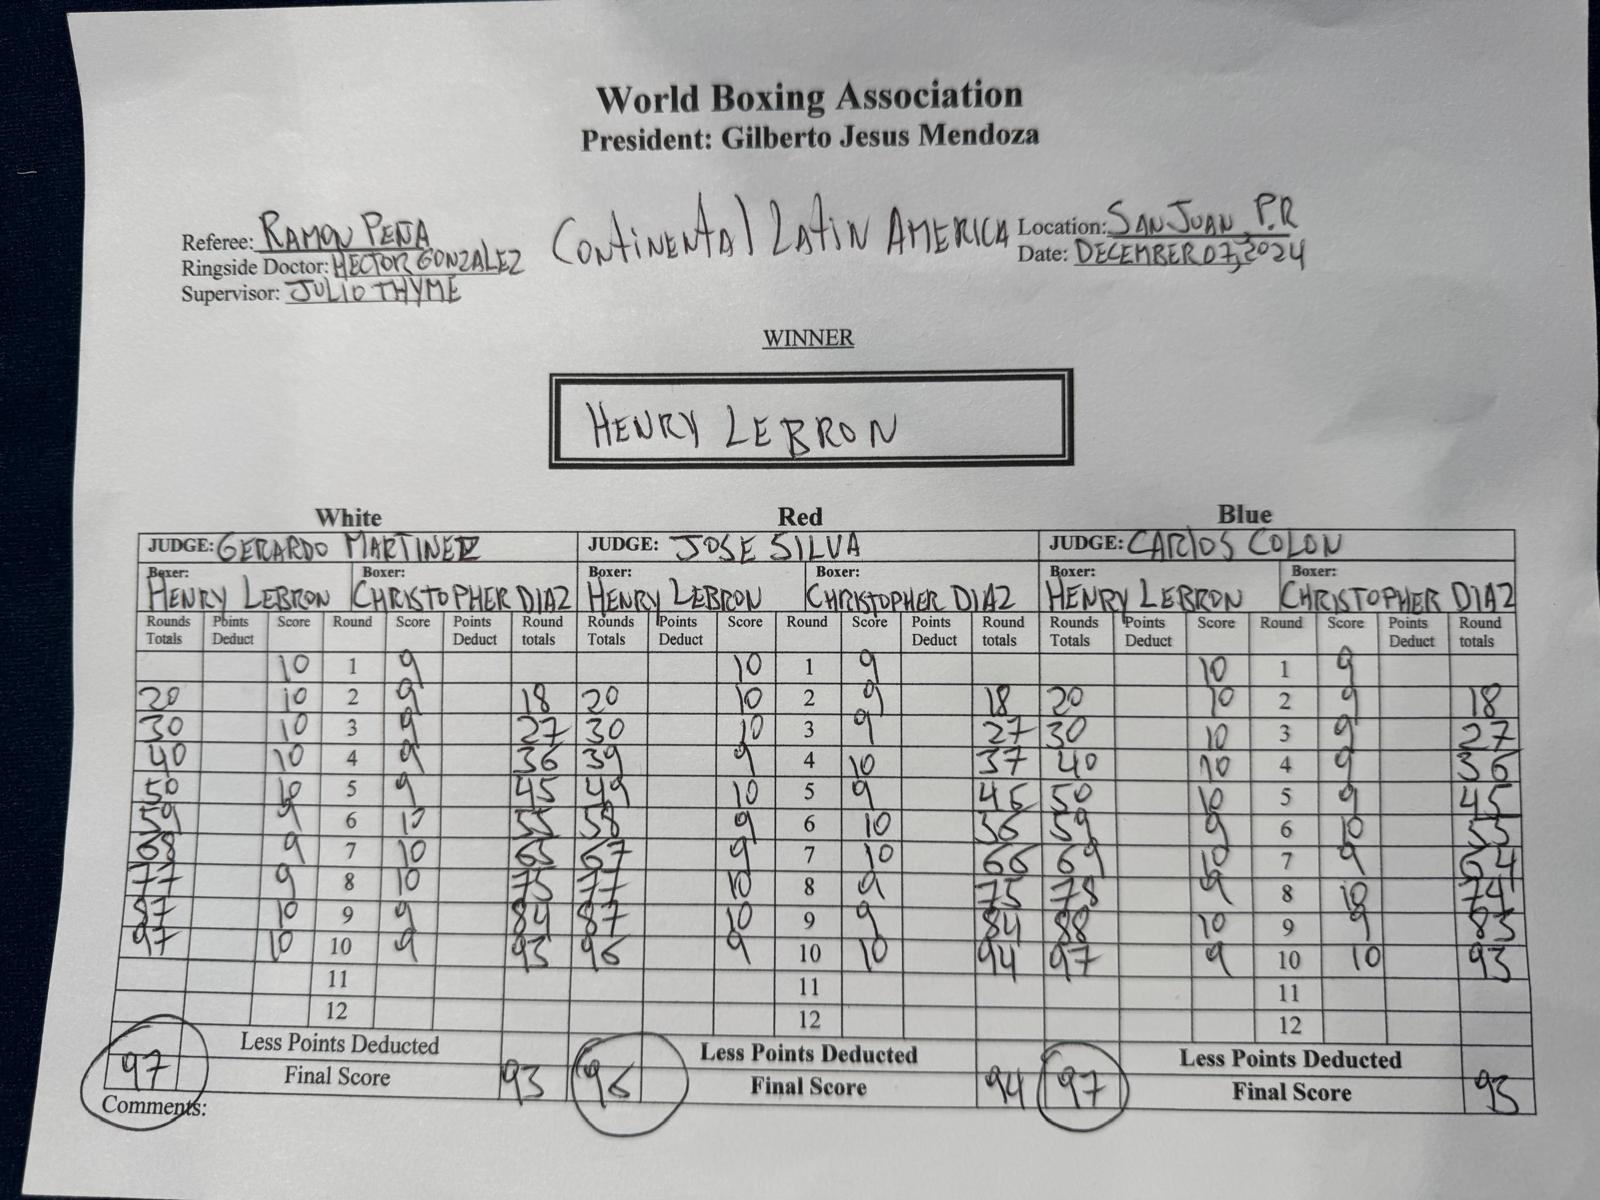 World Boxing Association
President: Gilberto Jesus Mendoza
Referee: RAMON PEÑA
Ringside Doctor: HECTOR GONZALEZ
Supervisor: JULIO THYME
Continental Latin America
Location: SAN JUAN, P.R
Date: DECEMBER 07, 2024
WINNER
HENRY LEBRON
White Red Blue
JUDGE: GERARDO MARTINEZ JUDGE: JOSE SILVA JUDGE: CARLOS COLON
Boxer: Boxer: Boxer: Boxer: Boxer: Boxer:
HENRY LEBRON CHRISTOPHER DIAZ HENRY LEBRON CHRISTOPHER DIAZ HENRY LEBRON CHRISTOPHER DIAZ
Rounds Totals Points Deduct Score Round Score Points Deduct Round totals Rounds Totals Points Deduct Score Round Score Points Deduct Round totals Rounds Totals Points Deduct Score Round Score Points Deduct Round totals
10 1 9 10 1 9 10 1 9
20 10 2 9 18 20 10 2 9 18 20 10 2 9 18
30 10 3 9 27 30 10 3 9 27 30 10 3 9 27
40 10 4 9 36 39 9 4 10 37 40 10 4 9 36
50 10 5 9 45 49 10 5 9 46 50 10 5 9 45
59 9 6 10 55 58 9 6 10 56 59 9 6 10 55
68 9 7 10 65 67 9 7 10 66 69 10 7 9 64
77 9 8 10 75 77 10 8 9 75 78 9 8 10 74
87 10 9 9 84 87 10 9 9 84 88 10 9 9 83
97 10 10 9 93 96 9 10 10 94 97 9 10 10 93
11 11 11
12 12 12
Less Points Deducted Less Points Deducted Less Points Deducted
97 Final Score 93 96 Final Score 94 97 Final Score 93
Comments: